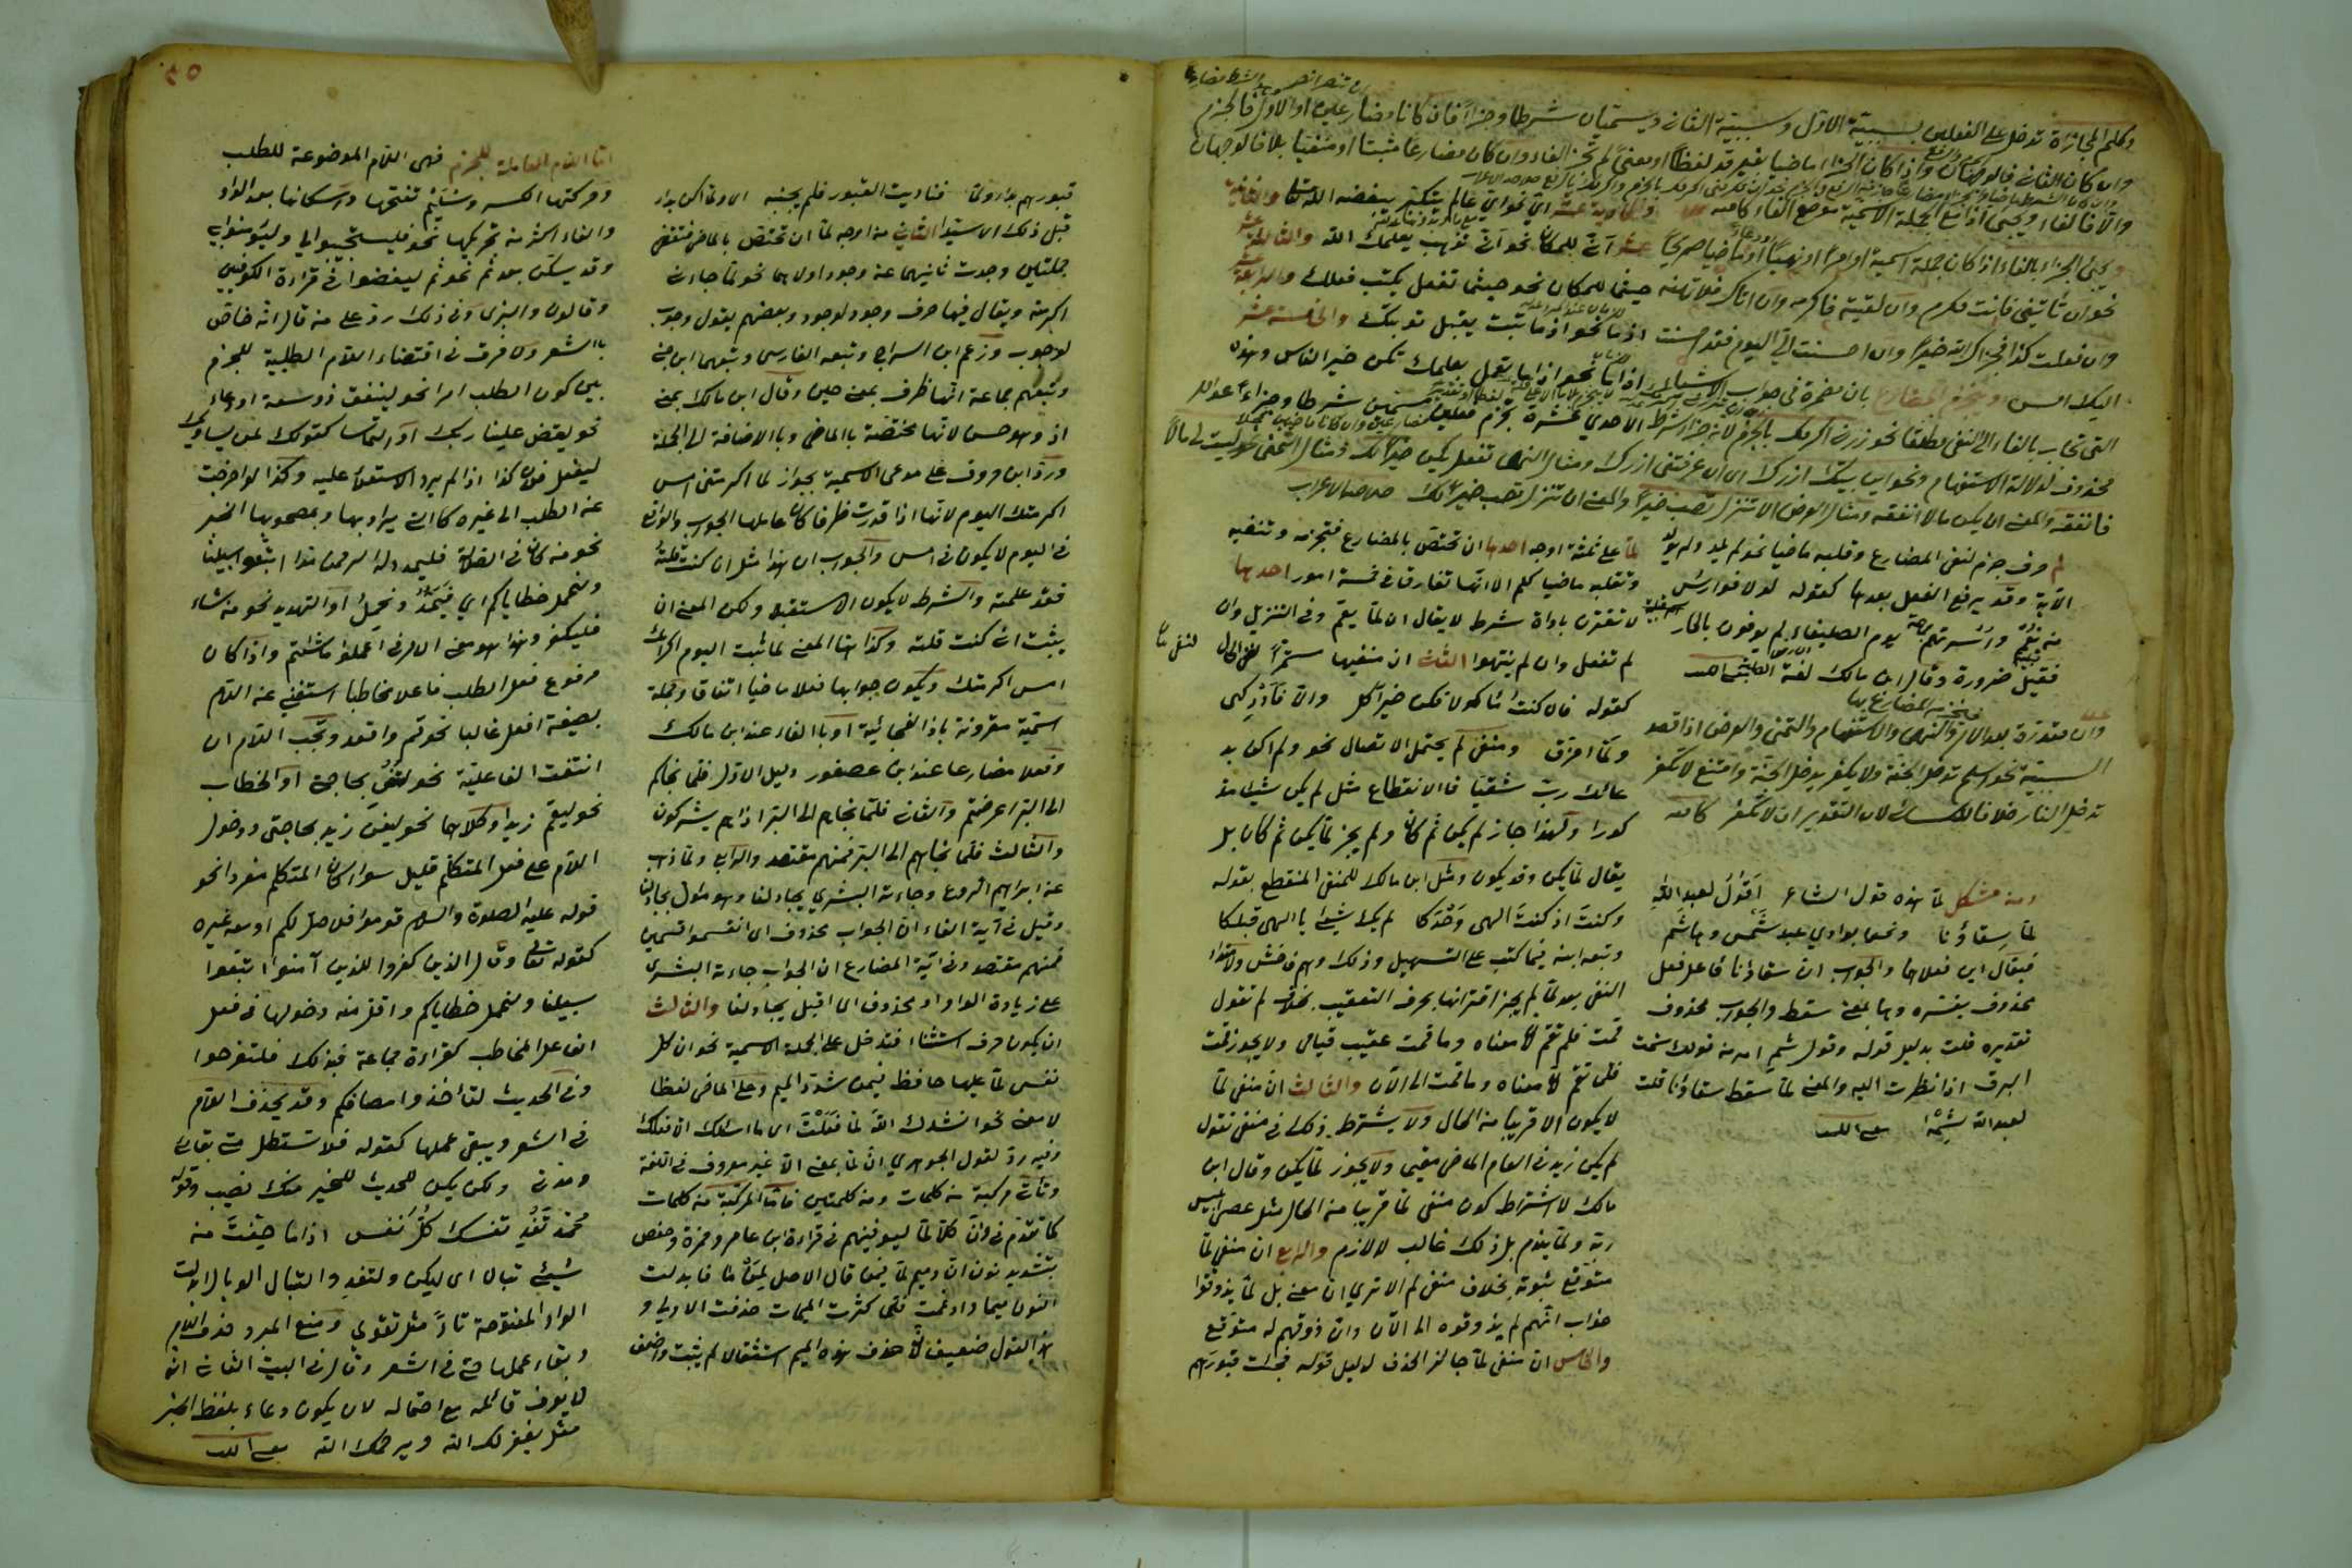 وكلم المجازاة تدخل على الفعلين لسببية الاول ومسببية الثاني ويسميان شرطا وجزاء فان كانا مضارعين او الاول فالجزم
وان كان الثاني فالوجهان واذا كان الجزاء ماضيا بغير قد لفظا او معنى لم تجز الفاء وان كان مضارعا مثبتا او منفيا بلا فالوجهان
والا فالفاء ويجيئ اذا مع الجملة الاسمية موضع الفاء كافيه
ويجيئ الجزاء بالفاء اذا كان جملة اسمية او امرا او نهيا او ماضيا صريحا
نحو ان تأتيني فانت مكرم وان لقيته فاكرمه وان اتاك فلا تهنه حيثما للمكان نحو حيثما تفعل يكتب فعلك والرابعة عشر
وان فعلت كذا فجزاك الله خيرا وان احسنت الي اليوم فقد احسنت اذما نحو اذما تتب يقبل توبتك والخامسة عشر
اليك امس اذاما نحو اذاما تعمل بعلمك تكن خير الناس وهذه
التي تجاب بالفاء الا النفي مطلقا نحو زرني اكرمك بالجزم لانه جزاء شرط الاحدي عشرة تجزم فعلين مسميين شرطا وجزاء
محذوف لدلالة الاستفهام ونحو اين بيتك ازرك اي ان عرفتني ازرك ومثال النهي لا تفعل يكن خيرا لك ومثال التمني نحو ليت لي مالا
فانفقه والمعنى ان يكن مالا انفقه ومثال العرض الا تنزل تصب خيرا والمعنى ان تنزل تصب خيرا لك
لم حرف جزم لنفي المضارع وقلبه ماضيا نحو لم يلد ولم يولد
الآية وقد يرفع الفعل بعدها كقوله لولا فوارس
من نعم واسرتهم يوم الصليفاء لم يوفون بالجار
فقيل ضرورة وقال ابن مالك لغة
وان مقدرة بعد الامر والنهي والاستفهام والتمني والعرض اذا قصد
السببية نحو اسلم تدخل الجنة ولا تكفر تدخل الجنة وامتنع لا تكفر
تدخل النار خلافا للكسائي لان التقدير ان لا تكفر كافيه
ومنه مشكل لما هذه قول الشاعر اقول لعبد الله
لما سقاؤنا ونحن بوادي عبد شمس وهاشم
فيقال اين فعلاها والجواب ان سقاؤنا فاعل فعل
محذوف يفسره وها بمعنى سقط والجواب محذوف
تقديره قلت بدليل قوله وقول شم امر من قولك شمت
البرق اذا نظرت اليه والمعنى لما سقط سقاؤنا قلت
لعبد الله شمه مغني اللبيب
لما على ثلثة اوجه احدها ان تختص بالمضارع فتجزمه وتنفيه
وتقلبه ماضيا كلم الا انها تفارقها في خمسة امور احدها
لا تقترن باداة شرط لا يقال ان لما يقم وفي التنزيل وان
لم تفعل وان لم ينتهوا الثاني ان منفيها مستمر الى الحال
كقوله فان كنت مأكولا فكن خير آكل والا فادركني
ولما امزق ومنفي لم يحتمل الاتصال نحو ولم اكن بد
عائك رب شقيا فالانقطاع مثل لم يكن شيئا مذ
كورا ولهذا جاز لم يكن ثم كان ولم يجز لما يكن ثم كان بل
يقال لما يكن وقد يكون ومثل ابن مالك للمنفي المنقطع بقوله
وكنت اذ كنت الهي وحدكا لم يك شيئ يا الهي قبلكا
وتبعه ابنه فيما كتب على التسهيل وذلك وهم فاحش ولامتداد
النفي بعد لما لم يجز اقترانها بحرف التعقيب بخلاف لم تقول
قمت فلم تقم لان معناه وما قمت عقيب قيامي ولا يجوز قمت
فلما تقم لان معناه وما قمت الى الآن والثالث ان منفي لما
لا يكون الا قريبا من الحال ولا يشترط ذلك في منفي لم تقول
لم يكن زيد في العام الماضي مقيما ولا يجوز لما يكن وقال ابن
مالك لا اشتراط كون منفي لما قريبا من الحال مثل عصى ابليس
ربه ولما يندم بل ذلك غالب لا لازم والرابع ان منفي لما
متوقع ثبوته بخلاف منفي لم الا ترى ان معنى بل لما يذوقوا
عذاب انهم لم يذوقوه الى الآن وان ذوقهم له متوقع
والخامس ان منفي لما جائز الحذف لدليل قوله فجئت قبورهم
٥٠
قبورهم بدأ ولما فناديت القبور فلم يجبنه اي ولما اكن بدأ
قبل ذلك اي سيدا الثاني من اوجه لما ان تختص بالماضي فتقتضي
جملتين وجدت ثانيهما عند وجود اولاهما نحو لما جاءني
اكرمته ويقال فيها حرف وجود لوجود وبعضهم يقول وجوب
لوجوب وزعم ابن السراج وتبعه الفارسي وتبعهما ابن جني
وتبعهم جماعة انها ظرف بمعنى حين وقال ابن مالك بمعنى
اذ وهو حسن لانها مختصة بالماضي وبالاضافة الى الجملة
ورد ابن خروف على مدعي الاسمية بجواز لما اكرمتني امس
اكرمتك اليوم لانها اذا قدرت ظرفا كان عاملها الجواب والواقع
في اليوم لا يكون في امس والجواب ان هذا مثل ان كنت قلته
فقد علمته والشرط لا يكون الا مستقبلا ولكن المعنى ان
يثبت اني كنت قلته وكذا هنا المعنى لما ثبت اليوم اكرامك
امس اكرمتك ويكون جوابها فعلا ماضيا اتفاقا وجملة
اسمية مقرونة باذا الفجائية او بالفاء عند ابن مالك
وفعلا مضارعا عند ابن عصفور دليل الاول فلما نجاكم
الى البر اعرضتم والثاني فلما نجاهم الى البر اذا هم يشركون
والثالث فلما نجاهم الى البر فمنهم مقتصد والرابع فلما ذهب
عن ابراهيم الروع وجاءته البشرى يجادلنا وهو مؤول بجادلنا
وقيل في آية الفاء ان الجواب محذوف اي انقسموا قسمين
فمنهم مقتصد وفي آية المضارع ان الجواب جاءته البشرى
على زيادة الواو او محذوف اي اقبل يجادلنا والثالث
ان يكون حرف استثناء فتدخل على الجملة الاسمية نحو ان كل
نفس لما عليها حافظ فيمن شدد الميم وعلى الماضي لفظا
لا معنى نحو انشدك الله لما فعلت اي ما اسئلك الا فعلك
وفيه رد لقول الجوهري ان لما بمعنى الا غير معروف في اللغة
وتأتي مركبة من كلمات ومن كلمتين فاما المركبة من كلمات
كما تقدم في وان كلا لما ليوفينهم في قراءة ابن عامر وحمزة وحفص
بتشديد نون ان وميم لما فيمن قال الاصل لمن ما فابدلت
النون ميما وادغمت فلما كثرت الميمات حذفت الاولى و
هذا القول ضعيف لان حذف هذه الميم استثقالا لم يثبت واضعف
اما اللام العاملة للجزم فهي اللام الموضوعة للطلب
وحركتها الكسر وسليم تفتحها واسكانها بعد الواو
والفاء اكثر من تحريكها نحو فليستجيبوا لي وليؤمنوا بي
وقد يسكن بعد ثم نحو ثم ليقضوا في قراءة الكوفيين
وقالون والبزي وفي ذلك رد على من قال انه خاص
بالشعر ولا فرق في اقتضاء اللام الطلبية للجزم
بين كون الطلب امرا نحو لينفق ذو سعة او دعاء
نحو ليقض علينا ربك او التماسا كقولك لمن يساويك
ليفعل فلان كذا اذا لم يرد الاستعلاء عليه وكذا لو اخرجت
عن الطلب الى غيره كالتي يراد بها وبمصحوبها الخبر
نحو من كان في الضلالة فليمدد له الرحمن مدا اتبعوا سبيلنا
ولنحمل خطاياكم اي فيمد ونحمل او التهديد نحو من شاء
فليكفر وهذا هو معنى الامر في اعملوا ما شئتم واذا كان
مرفوع فعل الطلب فاعلا مخاطبا استغني عن اللام
بصيغة افعل غالبا نحو قم واقعد وتجب اللام ان
انتفت الفاعلية نحو لتعن بحاجتي او الخطاب
نحو ليقم زيد او كلاهما نحو ليعن زيد بحاجتي ودخول
اللام على فعل المتكلم قليل سواء كان المتكلم مفردا نحو
قوله عليه الصلوة والسلام قوموا فلاصل لكم او معه غيره
كقوله تعالى وقال الذين كفروا للذين آمنوا اتبعوا
سبيلنا ولنحمل خطاياكم واقل منه دخولها في فعل
الفاعل المخاطب كقراءة جماعة فبذلك فلتفرحوا
وفي الحديث لتاخذوا مصافكم وقد يحذف اللام
في الشعر ويبقى عملها كقوله فلا تستطل مني بقائي
ومدتي ولكن يكن للخير منك نصيب وقوله
محمد تفد نفسك كل نفس اذا ما خفت من
شيئ تبالا اي ليكن ولتفد والتبال الوبال ابدلت
الواو المفتوحة تاء مثل تقوى ومنع المبرد حذف اللام
وبقاء عملها حتى في الشعر وقال في البيت الثاني انه
لا يعرف قائله مع احتماله لان يكون دعاء بلفظ الخبر
مثل يغفر لك الله ويرحمك الله مغني اللبيب